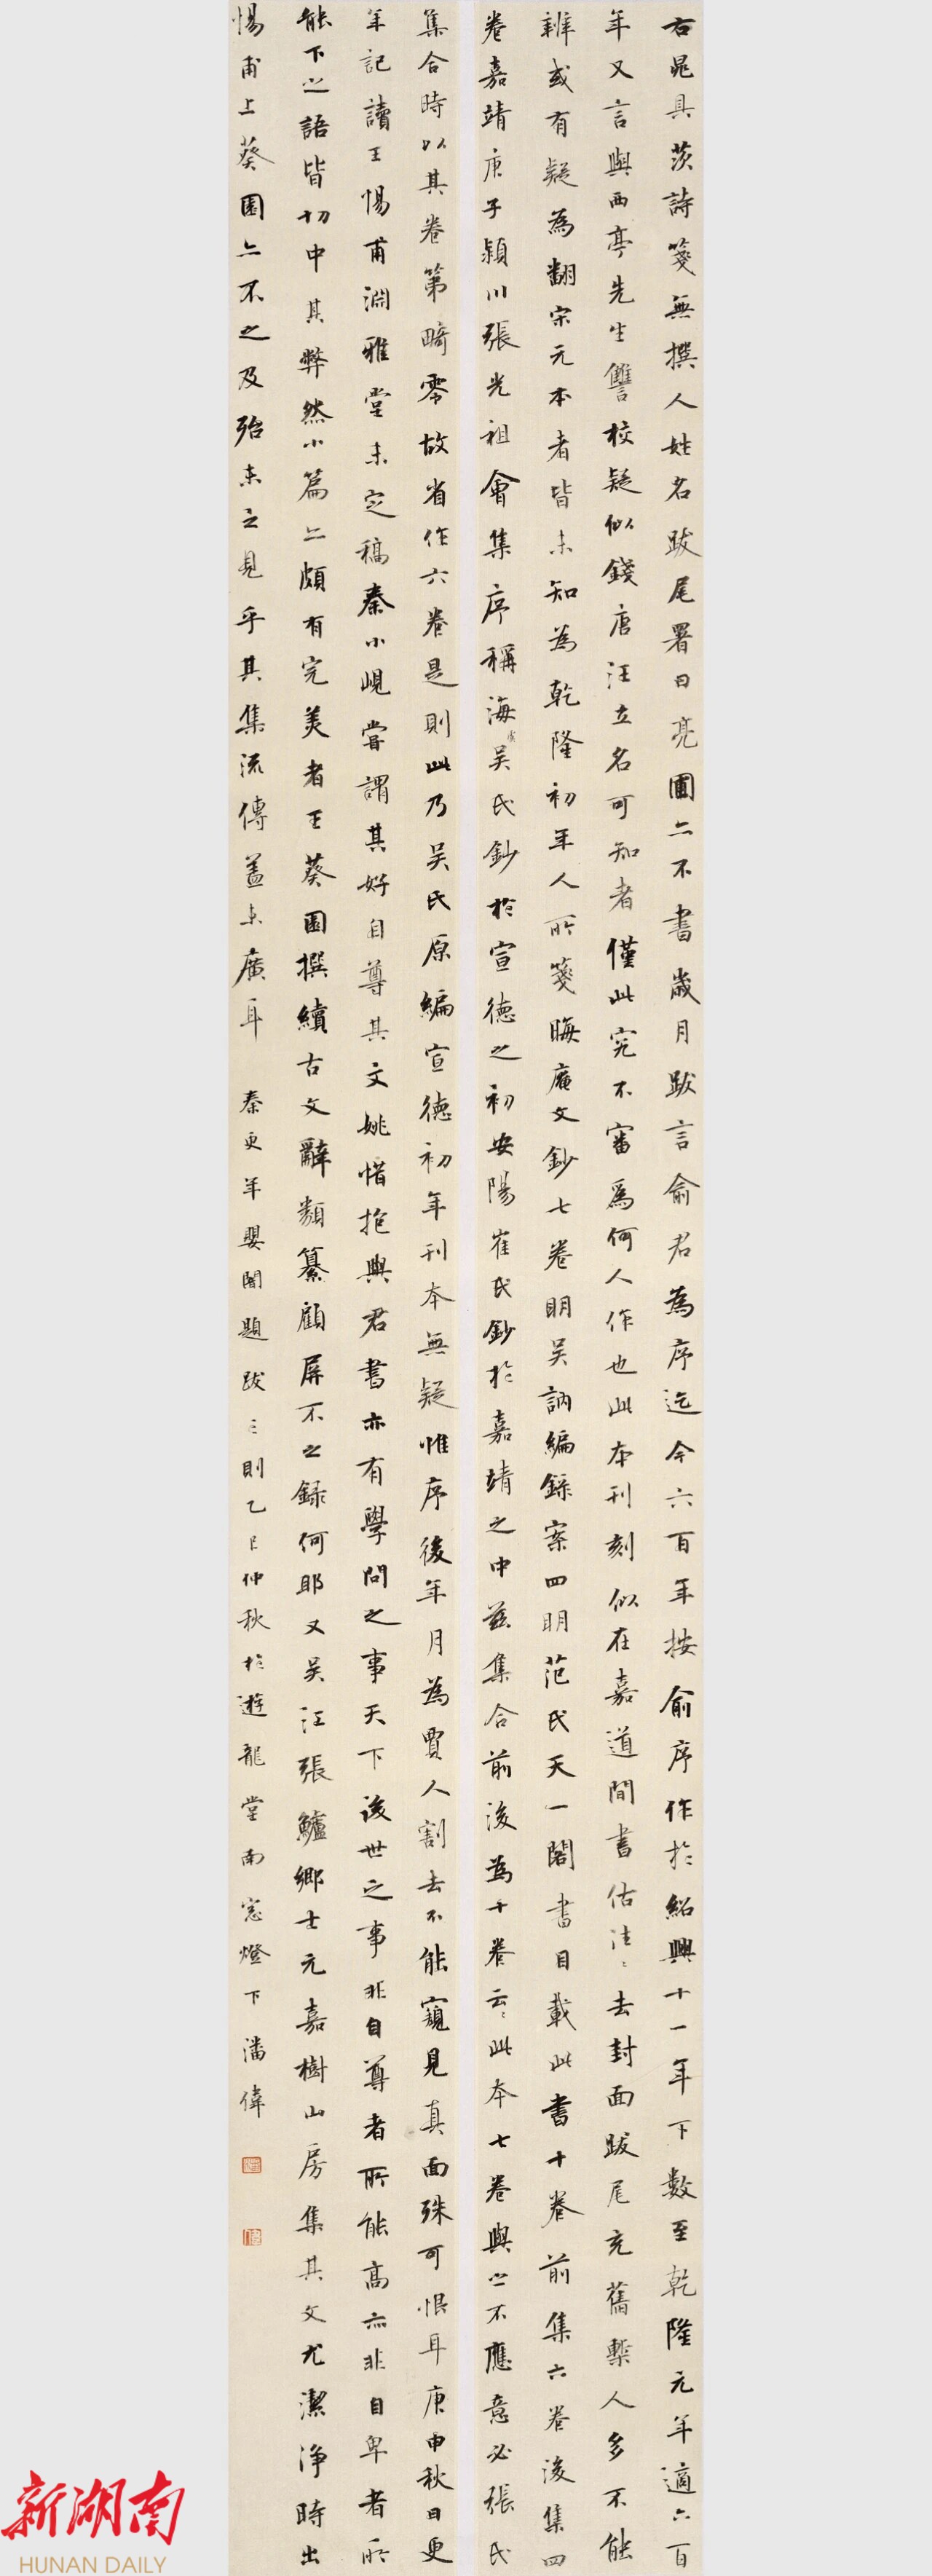 右晁具茨詩箋無撰人姓名跋尾署曰亮圃亦不書歲月跋言俞君為序迄今六百年按俞序作於紹興十一年下數至乾隆元年適六百
年又言與西亭先生讐校疑似錢唐汪立名可知者僅此究不審為何人作也此本刊刻似在嘉道間書估往〻去封面跋尾充舊槧人多不能
辨或有疑為翻宋元本者皆未知為乾隆初年人所箋晦庵文鈔七卷明吴訥編錄案四明范氏天一閣書目載此書十卷前集六卷後集四
卷嘉靖庚子潁川張光祖會集序稱海虞吴氏鈔於宣德之初安陽崔氏鈔於嘉靖之中茲集合前後為十卷云〻此本七卷與之不應意必張氏
集合時以其卷第畸零故省作六卷是則此乃吴氏原編宣德初年刊本無疑惟序後年月為賈人割去不能窺見真面殊可恨耳庚申秋日更
年記讀王惕甫淵雅堂未定稿秦小峴嘗謂其好自尊其文姚惜抱與君書亦有學問之事天下後世之事非自尊者所能高亦非自卑者所
能下之語皆切中其弊然小篇亦頗有完美者王葵園撰續古文辭類纂顧屏不之錄何耶又吴江張鱸鄉士元嘉樹山房集其文尤潔淨時出
惕甫上葵園亦不之及殆未之見乎其集流傳蓋未廣耳 秦更年嬰闇題跋三則乙巳仲秋於遊龍堂南窓燈下潘偉
新湖南
HUNAN DAILY